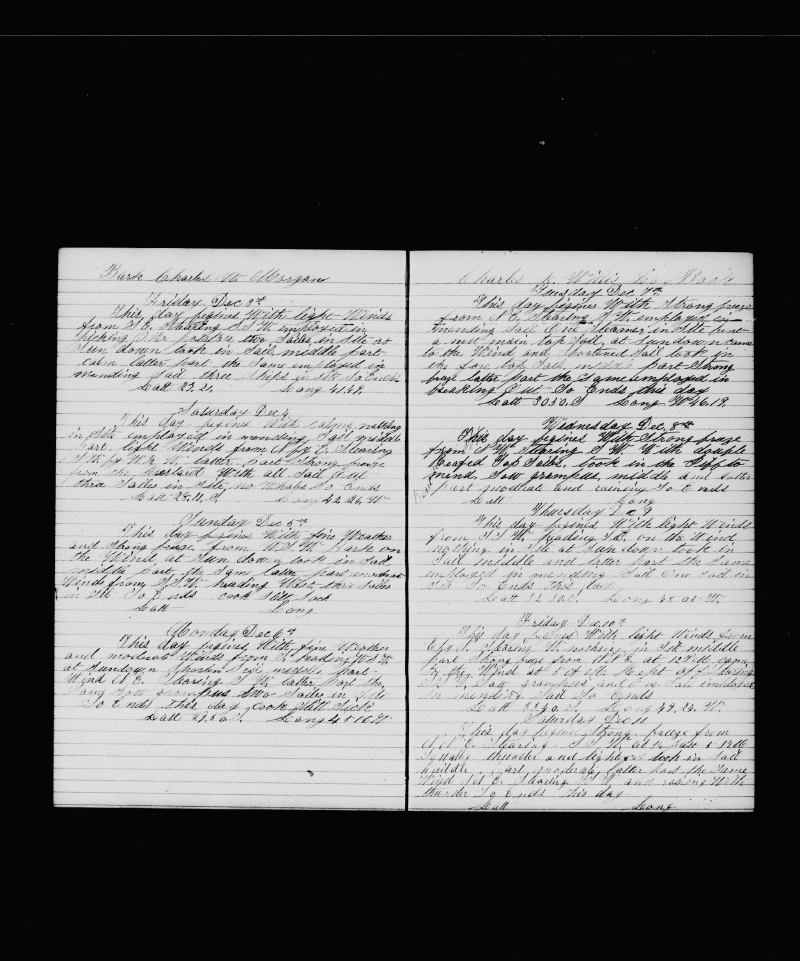 Bark Charles W Morgan
Friday Dec 3rd
This day begines With light Winds
from S E Stearing S S W employed in
picking over potatoes two Sailes in Site at
Sun down took in Sail middle part
calm latter part the Same employed in
mending Sail three Ships in Site So Ends
Latt 27. 21. Long 41.42.
Saturday Dec 4
This day begines With calmes nothing
in Site employed in mending Sail middle
part light Winds from N by E Stearing
S W by W latter part Strong breeze
from the Westard With all Sail
three Sailes in Site no Whales So Ends
Latt 28.11. S Long 42.26. W
Sunday Dec 5th
This day begines With fine Weather
and Strong breeze from W S W Bark on
the Wind at Sun down took in Sail
middle part the Same latter part modrate
Winds from S S W heading West three Sailes
in Site So Ends cook Still Sick
Latt Long
Monday Dec 6th
This day begines With fine Weather
and modrate Winds from S heading W S W
at Sundown Shorten Sail middle part
Wind N E Stearing S W latter part the
Same Saw grampus two Sailes in Site
So Ends this day cook Still Sick
Latt 29.50. S. Long 45 10 W
Charles W Book
Tuesday Dec 7th
This day begines With Strong breeze
from N E Stearing S W employed in
mending Sail One Steamer in Site bent
a new main top Sail, at Sundown came
to the Wind and Shortened Sail took in
the fore top Sail middle part Strong
breeze latter part the Same employed in
breaking out So Ends this day
Latt 30.50. S Long W 46.19.
Wednesday Dec. 8th
This day begines With Strong breeze
from N W Stearing S W With double
Reafed Top Sailes, took in the Jibb to
mend, Saw grampus, middle and latter
part modrate and raining So Ends
Latt Long
Thursday Dec 9
This day begines With light Winds
from S S W heading S E, on the Wind
nothing in Site at Sun down took in
Sail middle and latter part the Same
employed in mending Sail One Sail in
Site So Ends
Latt 32 30. S. Long 48 01 W.
Friday Dec 10th
This day begines With light Winds from
E by N. Stearing W nothing in Site middle
part Strong breeze from N E at 12 P M came
to the Wind at 5 A M Kept off Stearing
S W Saw grampus and One Sail employed
in mending Sail So Ends
Latt 33.40. S. Long 49. 24. W.
Saturday Dec 11
This day begines Strong breeze from
N N E Stearing S S W. at
Squaley thunder and lighting took in Sail
middle part modrate latter part the Same
Wind N E Stearing S W and raining With
thunder So Ends this day
Latt Long